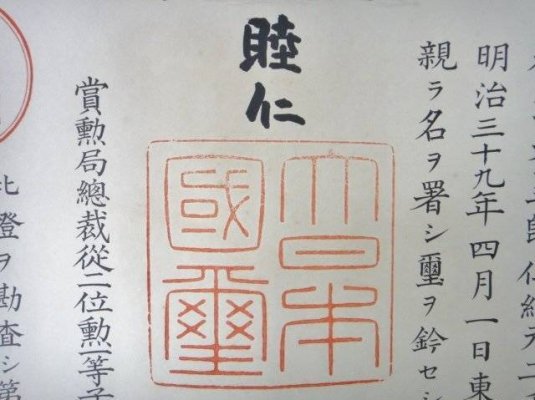 即位紀元二
明治三十九年四月一日東
親ラ名ヲ署シ璽ヲ鈐セシ
睦仁
大日本
國璽
賞勲局總裁從二位勲一等子
此證ヲ勘査シ第